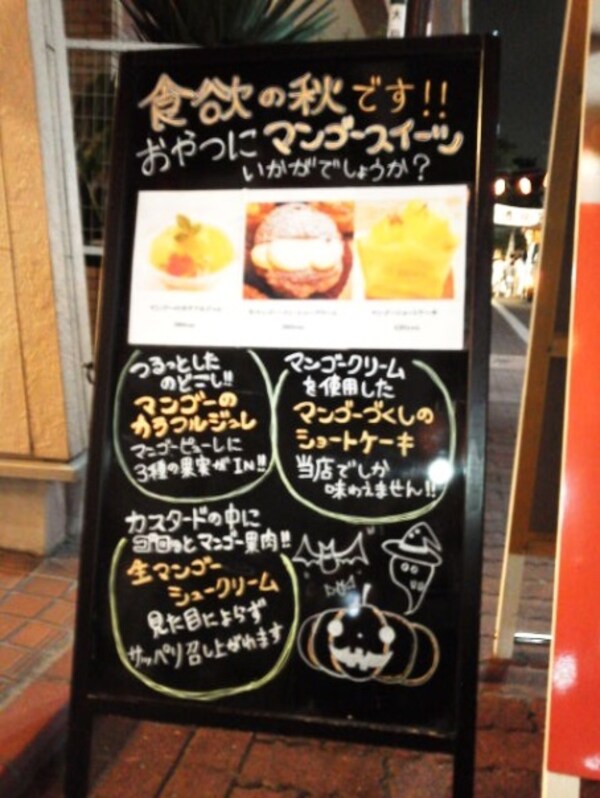 食欲の秋です!!
おやつにマンゴースイーツ
いかがでしょうか?
つるっとした
のどごし!!
マンゴーの
カラフルジュレ
マンゴーピューレに
3種の果実がIN!!
マンゴークリーム
を使用した
マンゴーづくしの
ショートケーキ
当店でしか
味わえません!!
カスタードの中に
ゴロゴロっとマンゴー果肉!!
生マンゴー
シュークリーム
見た目によらず
サッパリ召し上がれます